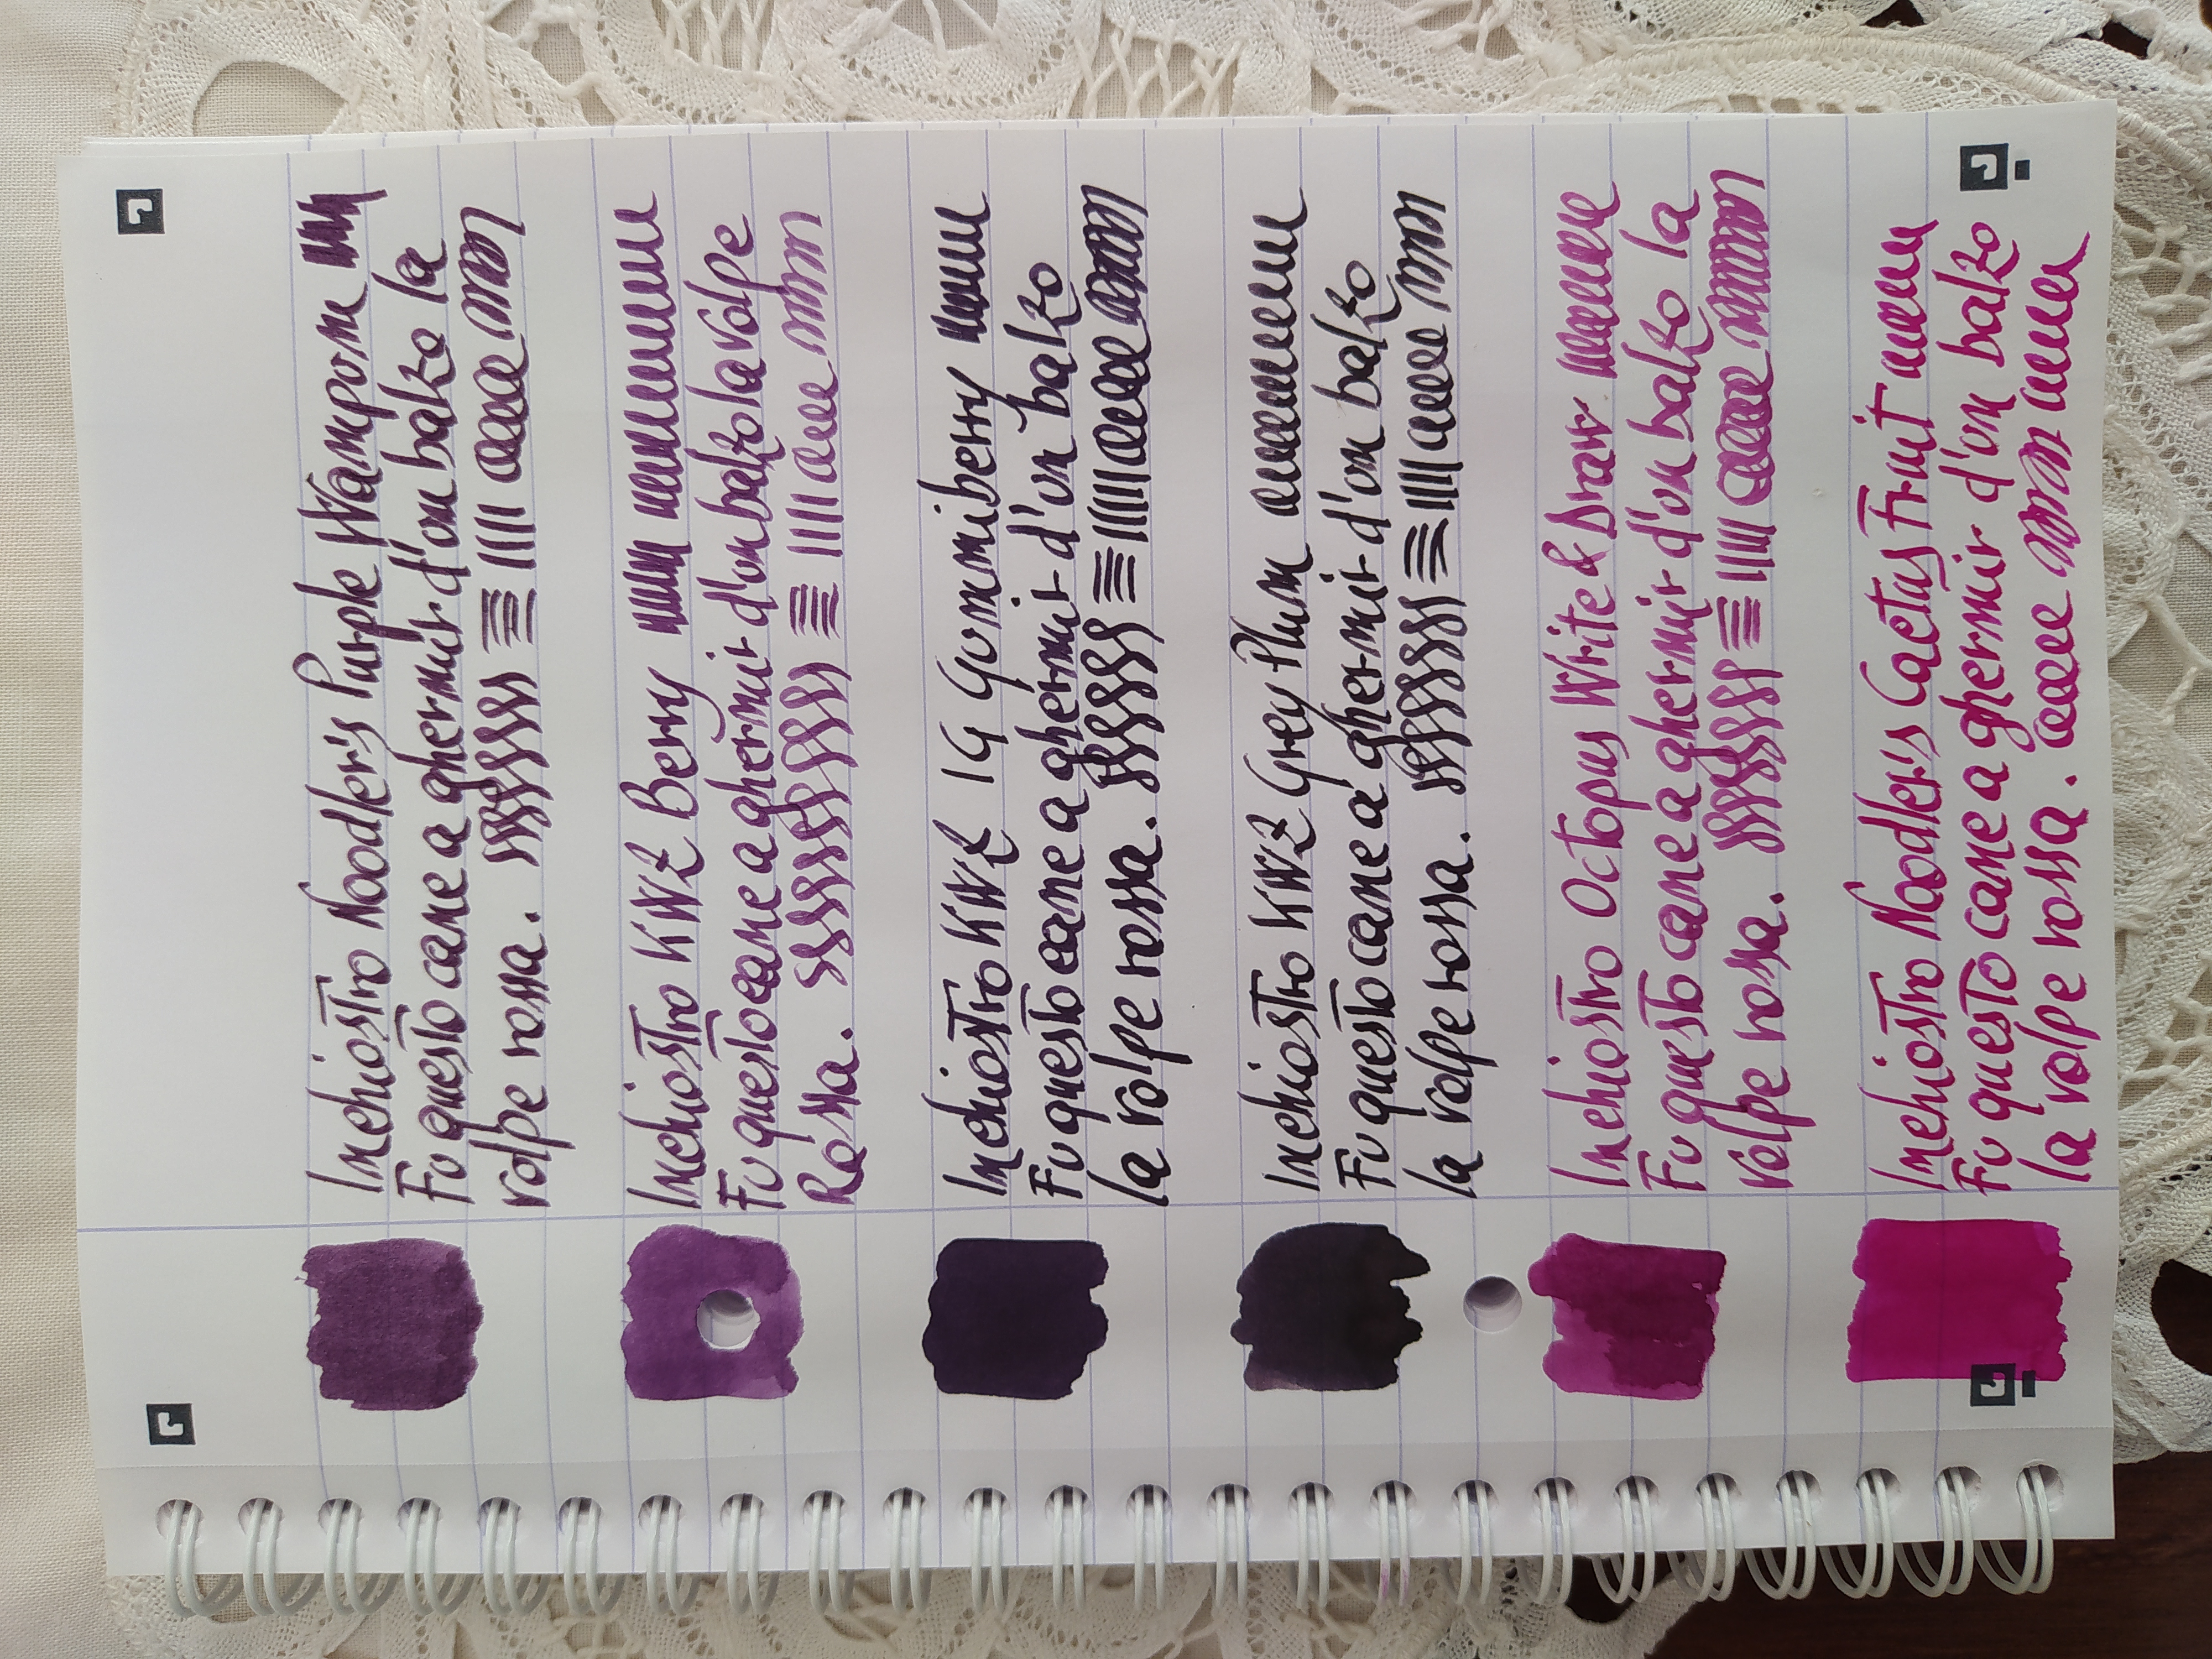 Inchiostro Noodler's Purple Wampom
Fu questo cane a ghermir d'un balzo la
volpe rossa.
Inchiostro KWZ Berry
Fu questo cane a ghermir d'un balzo la volpe
Rossa.
Inchiostro KWZ IG Gummiberry
Fu questo cane a ghermir d'un balzo
la volpe rossa.
Inchiostro KWZ Grey Plum
Fu questo cane a ghermir d'un balzo
la volpe rossa.
Inchiostro Octopus Write & Draw
Fu questo cane a ghermir d'un balzo la
volpe rossa.
Inchiostro Noodler's Cactus Fruit
Fu questo cane a ghermir d'un balzo
la volpe rossa.